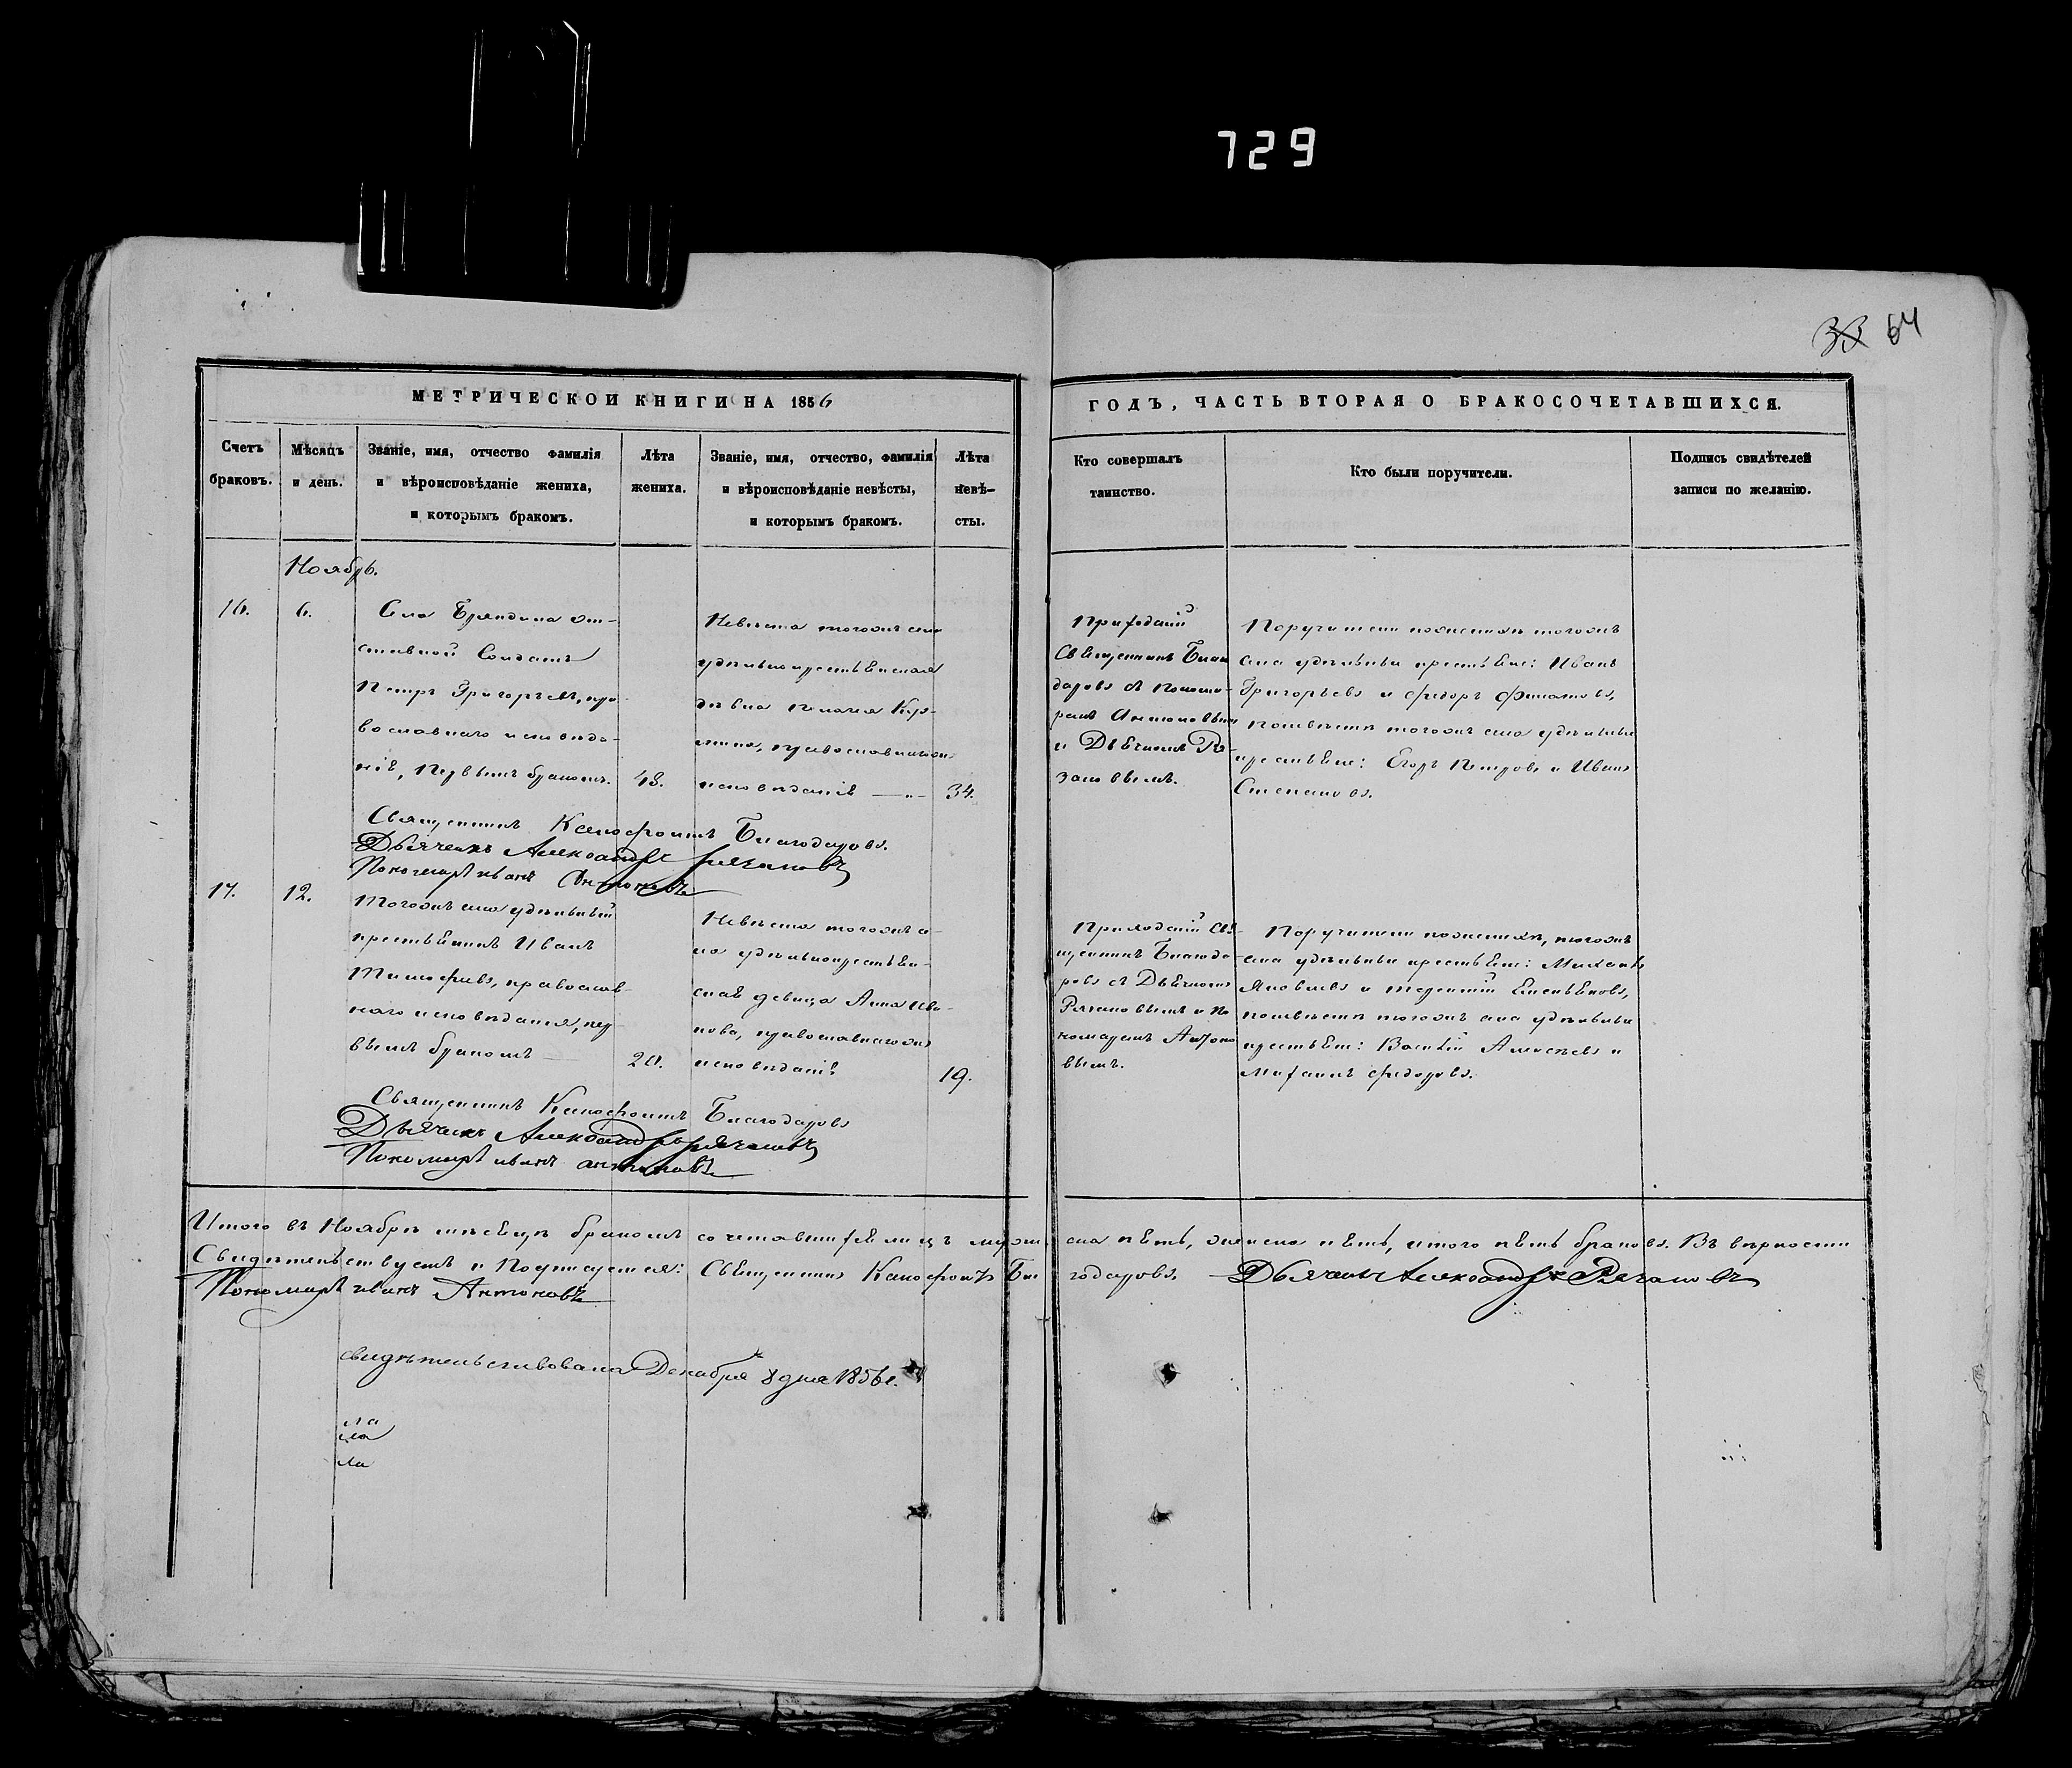 729
33 64
МЕТРИЧЕСКОЙ КНИГИ НА 1856
ГОДЪ, ЧАСТЬ ВТОРАЯ О БРАКОСОЧЕТАВШИХСЯ.
Счетъ
браковъ.
Мѣсяцъ
и день.
Званіе, имя, отчество фамилія
и вѣроисповѣданіе жениха,
и которымъ бракомъ.
Лѣта
жениха.
Званіе, имя, отчество, фамилія
и вѣроисповѣданіе невѣсты,
и которымъ бракомъ.
Лѣта
невѣ-
сты.
Кто совершалъ
таинство.
Кто были поручители.
Подпись свидѣтелей
записи по желанію.
Ноябрь.
16.
6.
Села Бряндина от-
ставной Солдатъ
Петръ Григорьевъ, пра-
вославнаго исповѣда-
нія, первымъ бракомъ.
48.
Невѣста тогожъ села
удѣльнокрестьянская
дѣвка
православнагожъ
исповѣданія
34.
Приходскій
Священникъ Благо
даровъ съ Понома-
ремъ Антоновымъ
и Дьячкомъ Ря-
зановымъ.
Поручители поженихѣ тогожъ
села удѣльные крестьяне: Иванъ
Григорьевъ и Федоръ Филатовъ,
поневѣстѣ тогожъ села удѣльные
крестьяне: Егоръ Петровъ и Иванъ
Степановъ.
Священникъ Ксенофонтъ Благодаровъ.
Дьячекъ Александръ Рязановъ
Пономарь Иванъ Антоновъ
17.
12.
Тогожъ села удѣльный
крестьянинъ Иванъ
Тимофеевъ, православ-
наго исповѣданія, пер-
вымъ бракомъ
20.
Невѣста тогожъ се-
ла удѣльнокрестьян-
ская девица Анна Ива-
нова, православнагожъ
исповѣданія
19.
Приходскій Свя-
щенникъ Благода-
ровъ съ Дьячкомъ
Рязановымъ и По
номаремъ Антоно
вымъ.
Поручители поженихѣ, тогожъ
села удѣльные крестьяне: Михаилъ
Яковлевъ и Терентій Емельяновъ,
поневѣстѣ тогожъ села удѣльные
крестьяне: Василій Алексѣевъ и
Михаилъ Федоровъ.
Священникъ Ксенофонтъ Благодаровъ
Дьячекъ Александръ Рязановъ
Пономарь Иванъ Антоновъ
Итого въ Ноябрѣ мѣсяцѣ бракомъ сочетавшихся лицъ муже ска пять, женска пять, итого пять браковъ. Въ вѣрности
Свидѣтельствуетъ и Подписуется: Священникъ Ксенофонтъ Бла годаровъ. Дьячекъ Александръ Рязановъ
Пономарь Иванъ Антоновъ
свидѣтельствована Декабря 8 дня 1856 г.